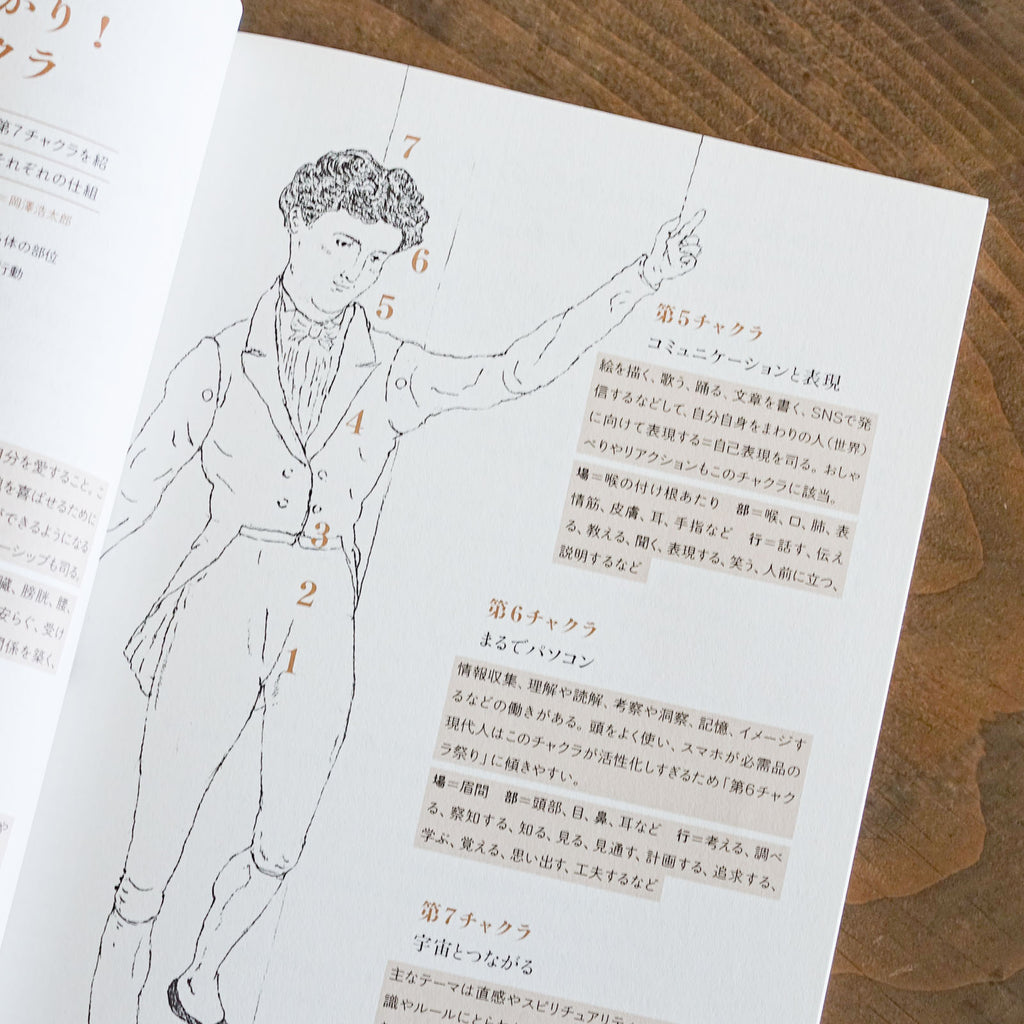 かり！
クラ
第7チャクラを紹
それぞれの仕組
＝岡澤浩太郎
体の部位
行動
自分を愛すること。こ
を喜ばせるために
ができるようになる
ーシップも司る。
臓、膀胱、腰、
安らぐ、受け
関係を築く、
や
7
6
5
4
3
2
1
第5チャクラ
コミュニケーションと表現
絵を描く、歌う、踊る、文章を書く、SNSで発
信するなどして、自分自身をまわりの人（世界）
に向けて表現する＝自己表現を司る。おしゃ
べりやリアクションもこのチャクラに該当。
場＝喉の付け根あたり 部＝喉、口、肺、表
情筋、皮膚、耳、手指など 行＝話す、伝え
る、教える、聞く、表現する、笑う、人前に立つ、
説明するなど
第6チャクラ
まるでパソコン
情報収集、理解や読解、考察や洞察、記憶、イメージす
るなどの働きがある。頭をよく使い、スマホが必需品の
現代人はこのチャクラが活性化しすぎるため「第6チャク
ラ祭り」に傾きやすい。
場＝眉間 部＝頭部、目、鼻、耳など 行＝考える、調べ
る、察知する、知る、見る、見通す、計画する、追求する、
学ぶ、覚える、思い出す、工夫するなど
第7チャクラ
宇宙とつながる
主なテーマは直感やスピリチュアリテ
識やルールにとら